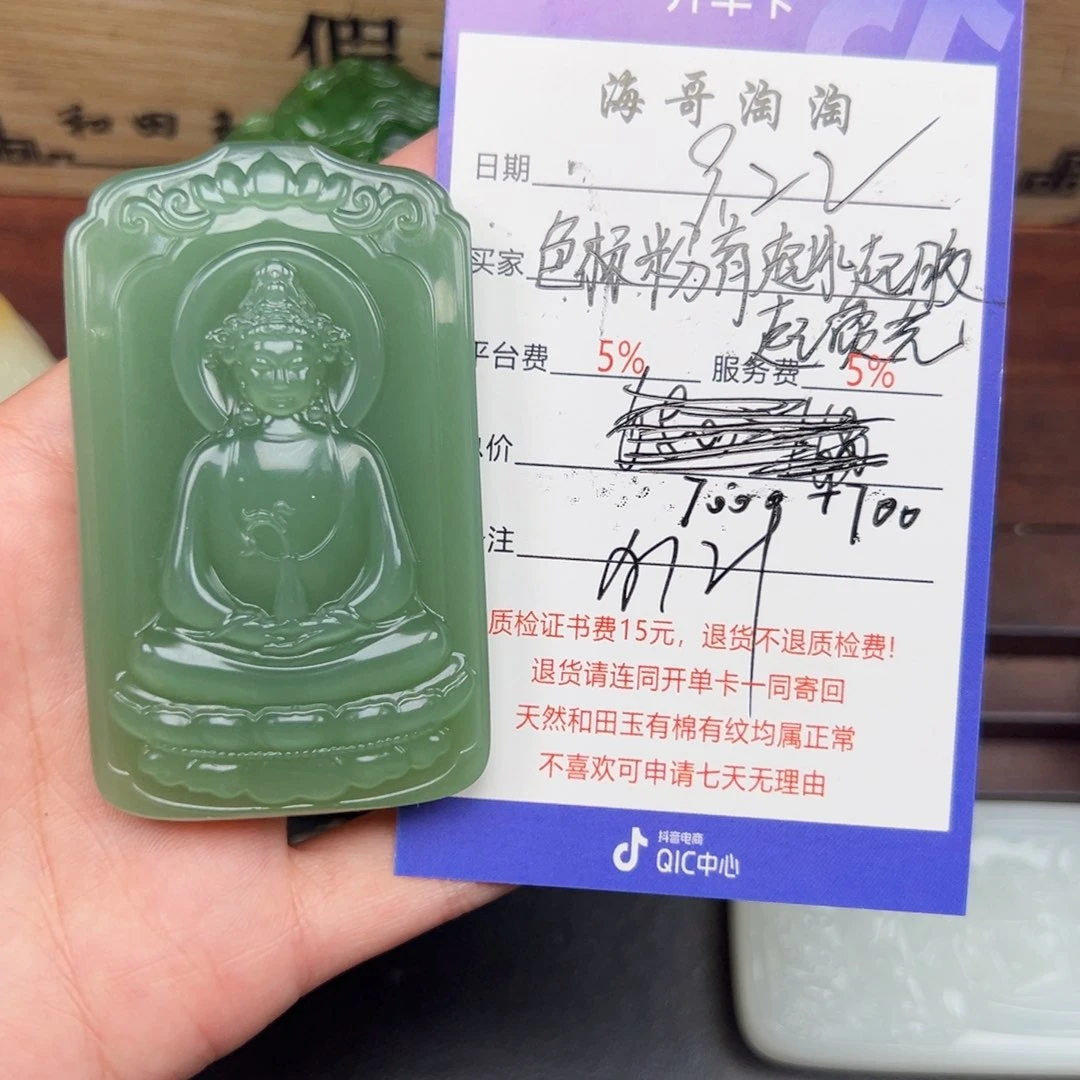 开单卡
假一
和田玉
海哥淘淘
日期 9.22
买家 色标粉有起乳起胶
起荧光
平台费 5% 服务费 5%
价
7000+700
注
质检证书费15元，退货不退质检费!
退货请连同开单卡一同寄回
天然和田玉有棉有纹均属正常
不喜欢可申请七天无理由
抖音电商
QIC中心